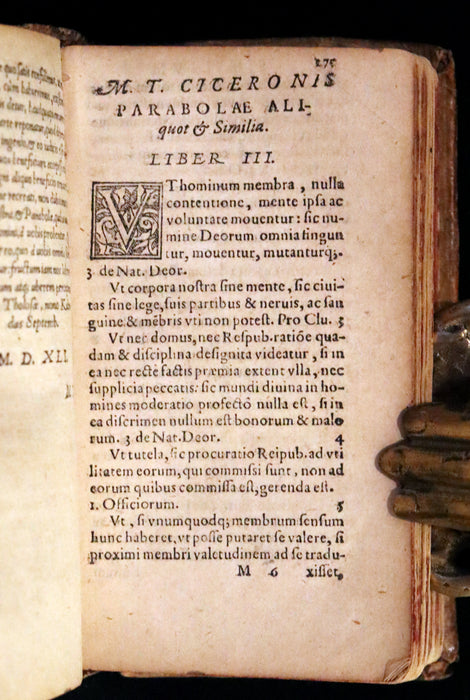 M. D. XLI
275
M. T. CICERONIS
PARABOLAE ALI-
quot & Similia.
LIBER III.
VThominum membra, nulla
contentione, mente ipsa ac
voluntate mouentur: sic nu-
mine Deorum omnia fingun
tur, mouentur, mutanturq́;.
3 de Nat. Deor.
Vt corpora nostra sine mente, sic ciui-
tas sine lege, suis partibus & neruis, ac san
guine & mẽbris vti non potest. Pro Clu. 3
Vt nec domus, nec Respub. ratiõe qua-
dam & disciplina designita videatur, si in
ea nec rectè factis præmia extent vlla, nec
supplicia peccatis: sic mundi diuina in ho-
mines moderatio profectò nulla est, si in
ea discrimen nullum est bonorum & malo
rum. 3 de Nat. Deor. 4
Vt tutela, sic procuratio Reipub. ad vti
litatem eorum, qui commissi sunt, non ad
eorum quibus commissa est, gerenda est.
1. Officiorum. 5
Vt, si vnumquodq; membrum sensum
hunc haberet, vt posse putaret se valere, si
proximi membri valetudinem ad se tradu-
M 6 xisset,